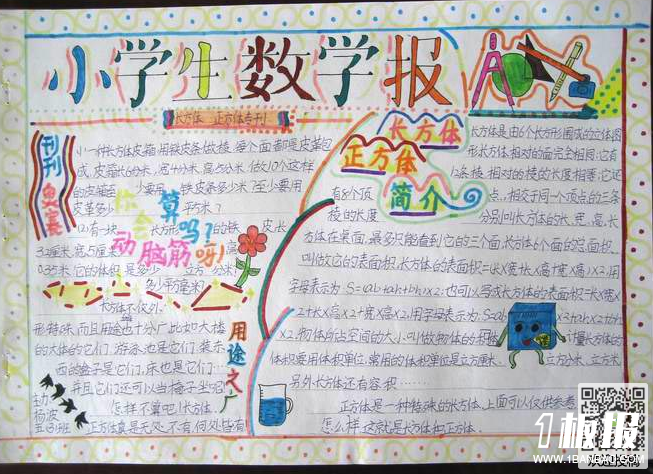 小学生数学报
长方体 正方体专刊
刊刊奥赛
小一种长方体皮箱,用铁皮条做棱,每个面都是皮革包
成,皮箱长6米,宽4分米,高5分米,做10个这样
的皮箱至少要用 铁皮条多少米?至少要用
皮革多少 平方米?
你会算吗?
动脑筋呀!
2、有一块 长方形的铁皮长
3.2厘米,宽5厘米
0.35米,它的体积是多少 立方分米?
多少平方厘米?
长方体不仅外
形特殊,而且用途也十分广,比如大楼
的大体的它们,游泳池是它们,装东
西的盒子是它们,床也是它们
并且它们还可以当椅子坐呢
怎样不算吧!长方体
正方体真是无处不有,何处总有
用途之广
长方体
正方体
简介
长方体是由6个长方形围成的立体图
形,长方体相对的面完全相同;它有
12条棱,相对的棱的长度相等;它还
有8个顶点,相交于同一顶点的三条
棱的长度分别叫长方体的长、宽、高,长
方体在桌面,最多只能看到它的三个面,长方体6个面的总面积,
叫做它的表面积,长方体的表面积=(长×宽+长×高+宽×高)×2,用
字母表示为:S=(ab+ah+bh)×2;也可以写成长方体的表面积=长×宽
×2+长×高×2+宽×高×2,用字母表示为:S=ab×2+ah×2+bh
×2,物体所占空间的大小叫做物体的体积,计量长方体的
体积要用体积单位,常用的体积单位是立方厘米、立方分米、立方米
另外长方体还有容积……
正方体是一种特殊的长方体,上面可以仅供参考
怎么样,这就是长方体和正方体
五(3)班
1板报
WWW.1BANBAO.COM